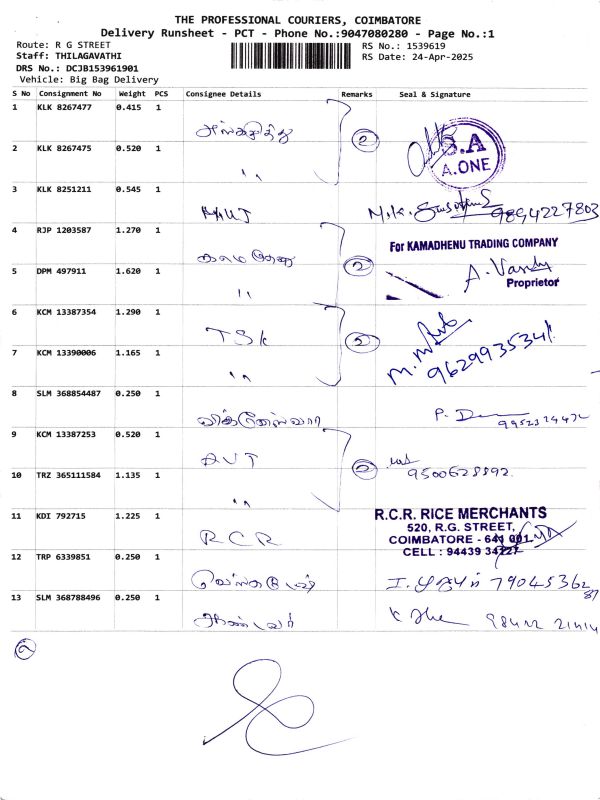 THE PROFESSIONAL COURIERS, COIMBATORE
Delivery Runsheet - PCT - Phone No.:9047080280 - Page No.:1
Route: R G STREET
RS No.: 1539619
Staff: THILAGAVATHI
RS Date: 24-Apr-2025
DRS No.: DCJB153961901
Vehicle: Big Bag Delivery
S No Consignment No Weight PCS Consignee Details Remarks Seal & Signature
1 KLK 8267477 0.415 1 2
S.A
A.ONE
2 KLK 8267475 0.520 1 "
3 KLK 8251211 0.545 1 9894227803
4 RJP 1203587 1.270 1 2
For KAMADHENU TRADING COMPANY
Proprietor
5 DPM 497911 1.620 1 "
6 KCM 13387354 1.290 1 TSK 2
7 KCM 13390006 1.165 1 "
8 SLM 368854487 0.250 1 விக்னேஸ்வரா
9 KCM 13387253 0.520 1 AVT 2
10 TRZ 365111584 1.135 1 " 9500628892
11 KDI 792715 1.225 1 RCR
R.C.R. RICE MERCHANTS
520, R.G. STREET,
COIMBATORE - 641 001.
CELL : 94439 34227
12 TRP 6339851 0.250 1
13 SLM 368788496 0.250 1